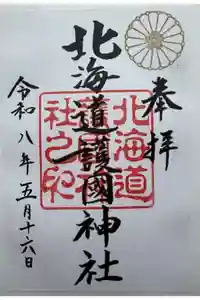 奉拝
北海道護國神社
北海道護國神社之印
令和八年五月十六日